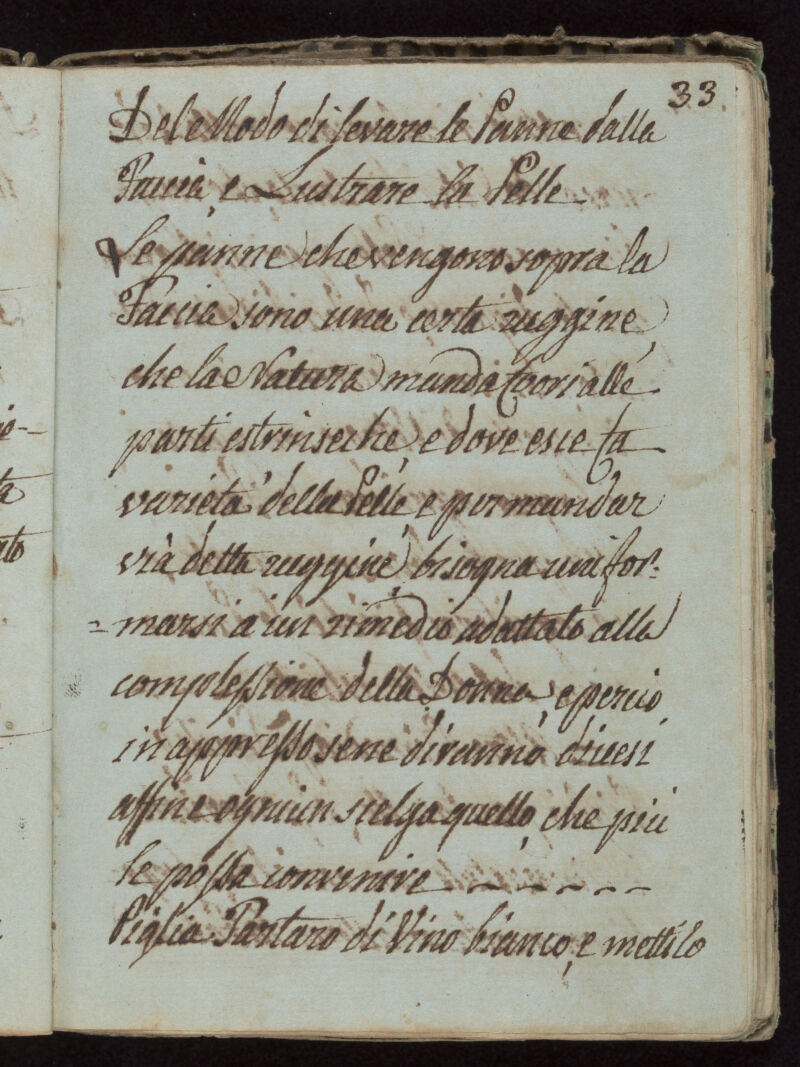 33
Del Modo di levare le Panne dalla
Faccia, e Lustrare la Pelle
Le panne che vengono sopra la
Faccia sono una certa ruggine,
che la Natura manda fuori alle
parti estrinseche, e dove esce la
varietà della Pelle, e per mandar
vià detta ruggine, bisogna unifor-
=marsi à un rimedio adattato alla
complessione della Donna, e perciò
in appresso se ne diranno diversi
affine ogniun scelga quello, che più
le possa convenire
Piglia Tartaro di Vino bianco, e mettilo